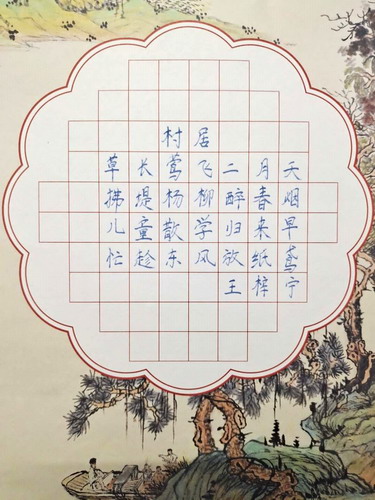 村居
草长莺飞二月天
拂堤杨柳醉春烟
儿童散学归来早
忙趁东风放纸鸢
王梓宁